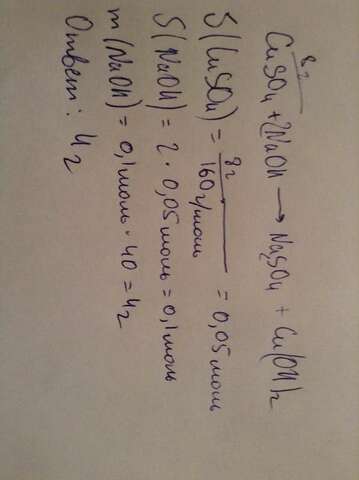 8г
CuSO4 + 2NaOH → Na2SO4 + Cu(OH)2
ν(CuSO4) = 8г / 160г/моль = 0,05 моль
ν(NaOH) = 2 · 0,05 моль = 0,1 моль
m(NaOH) = 0,1 моль · 40 = 4г
Ответ: 4г